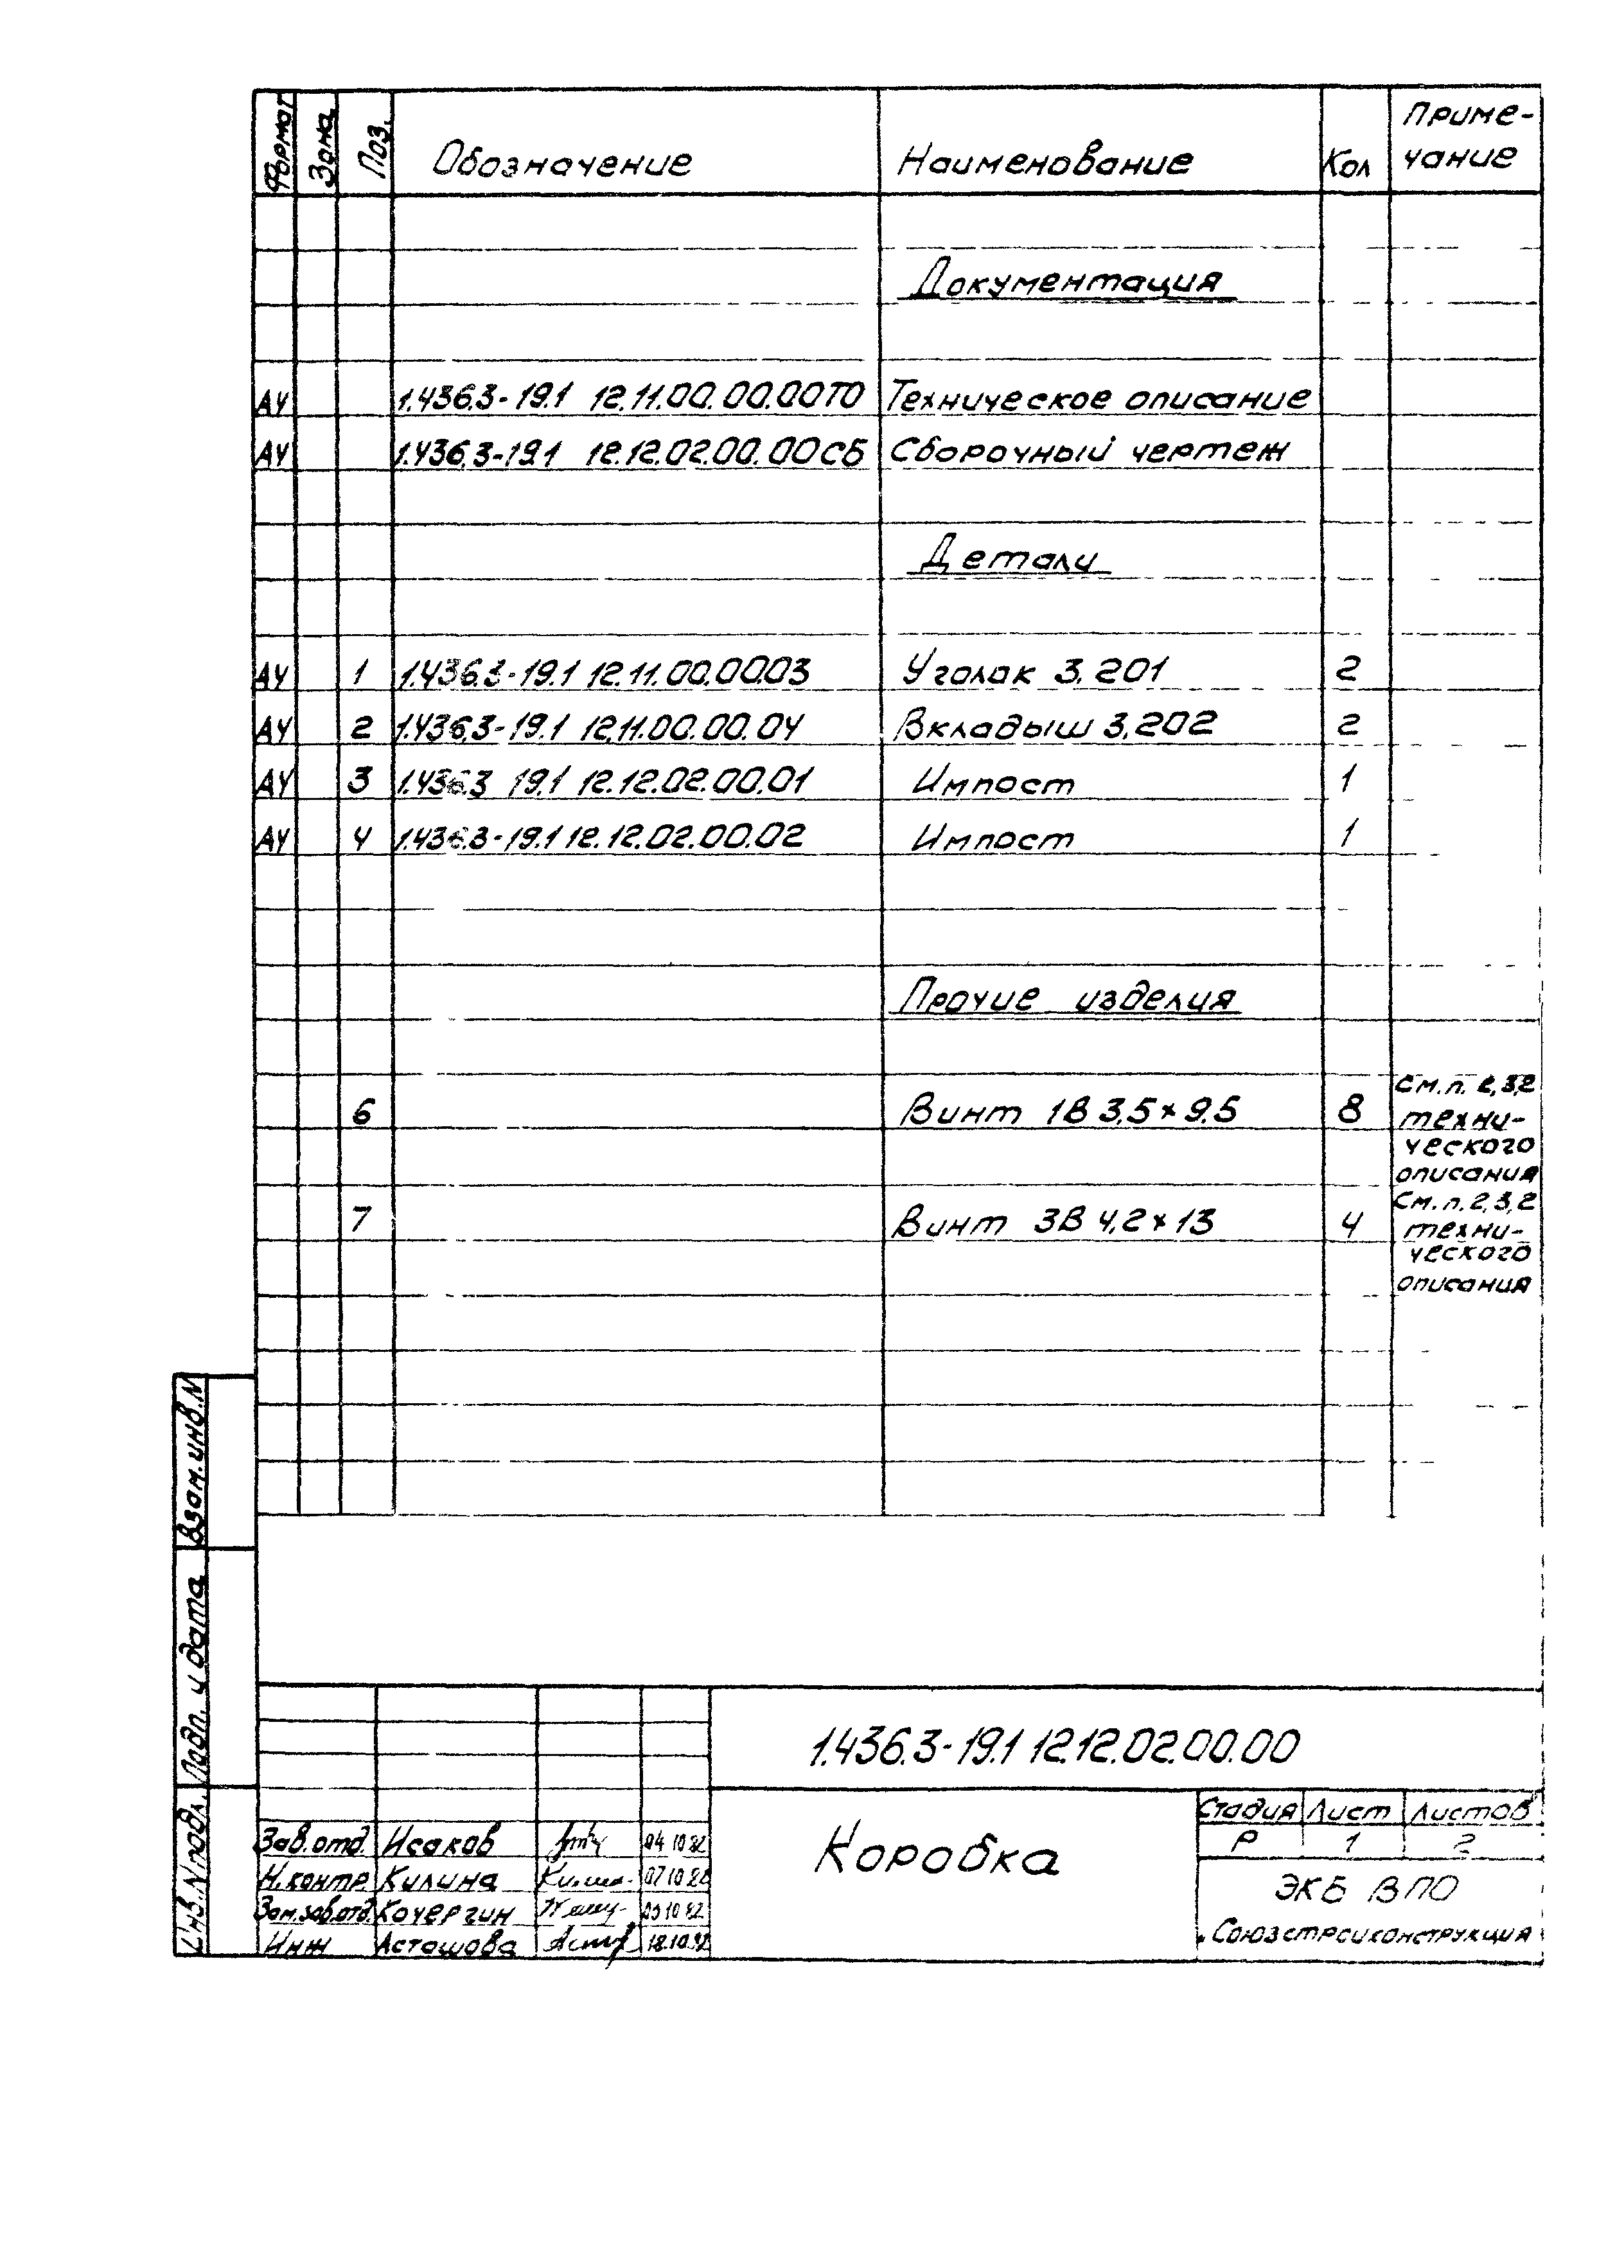 Формат Зона Поз. Обозначение Наименование Кол Приме-
чание
Документация
А4 1.436.3-19.1 12.11.00.00.00ТО Техническое описание
А4 1.436.3-19.1 12.12.02.00.00СБ Сборочный чертеж
Детали
А4 1 1.436.3-19.1 12.11.00.00.03 Уголак 3.201 2
А4 2 1.436.3-19.1 12.11.00.00.04 Вкладыш 3.202 2
А4 3 1.436.3 19.1 12.12.02.00.01 Импост 1
А4 4 1.436.3-19.1 12.12.02.00.02 Импост 1
Прочие изделия
6 Винт 1В 3,5×9,5 8 См.п. 2,3,2
техни-
ческого
описания
7 Винт 3В 4,2×13 4 См.п. 2,3,2
техни-
ческого
описания
Взам.инв.N
Подп. и дата
Инв.N подл.
1.436.3-19.1 12.12.02.00.00
Коробка
Стадия Лист Листов
Р 1 2
ЭКБ ВПО
Союзстройконструкция
Зав.отд. Исаков 04 10 82
Н.контр. Килина 07 10 82
Зам.зав.отд. Кочергин 05 10 82
Инж Асташова 18.10.82